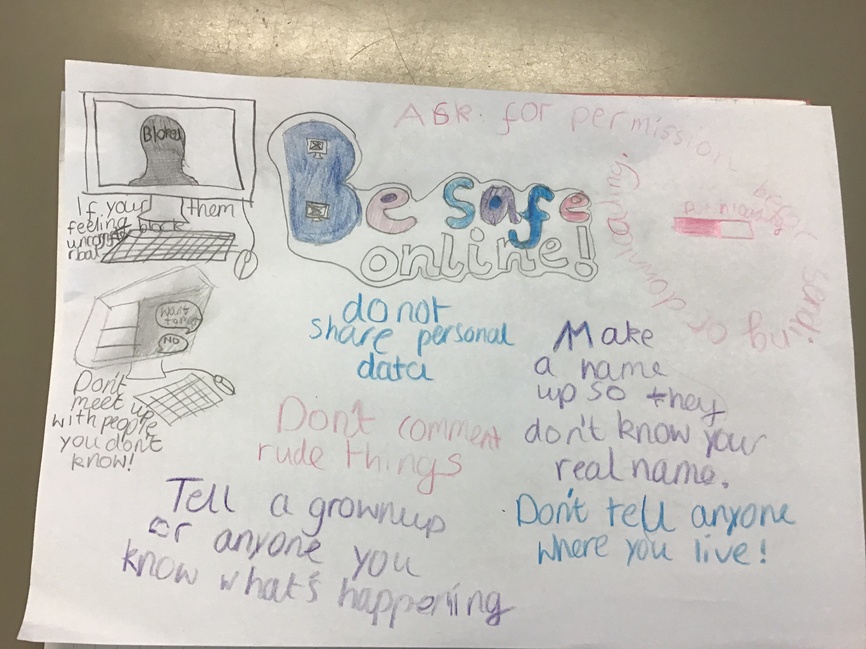 Be safe
online!
Ask for permission before sending or downloading.
If your them
feeling block
do not
share personal
data
Make
a name
up so they
don't know your
real name.
want
NO
Don't
meet up
with people
you don't
know!
Don't comment
rude things
Tell a grownup
or anyone you
know what's happening
Don't tell anyone
where you live!